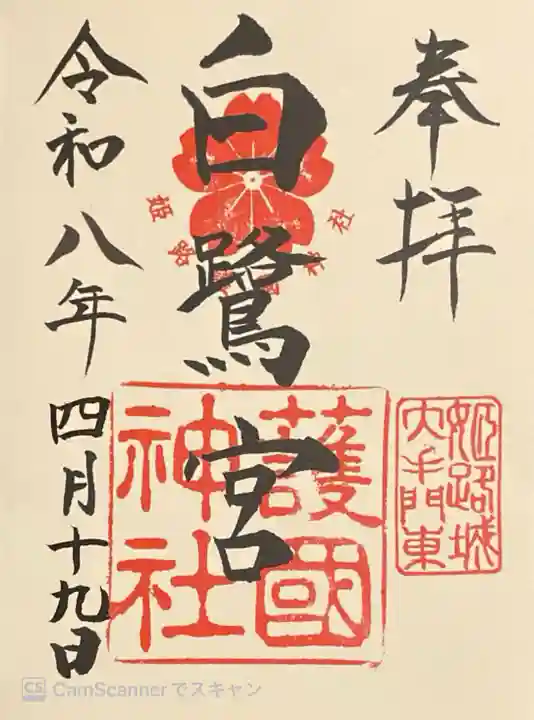 奉拝
姫路城
大手門東
白鷺宮
姫路護國神社
護國
神社
令和八年四月十九日
CamScannerでスキャン